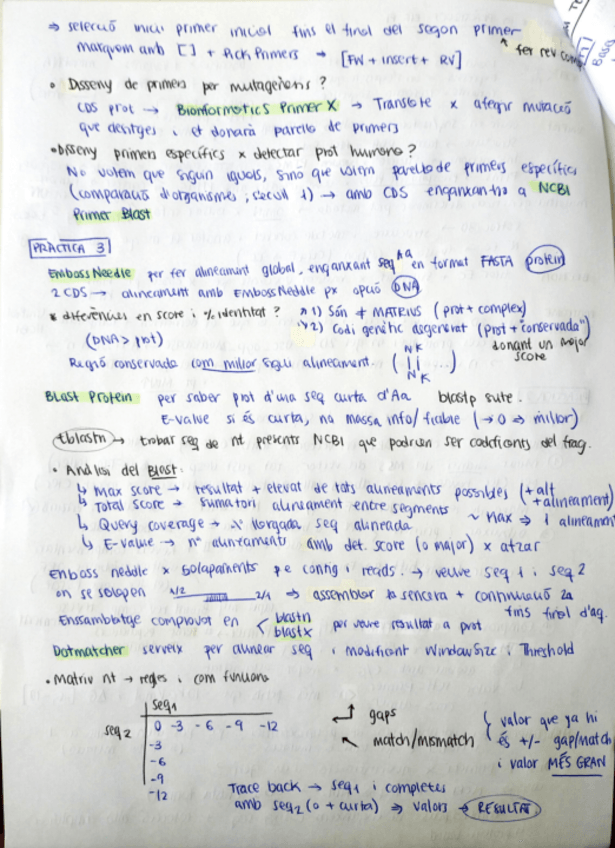 ⇒ selecció inici primer inicial fins el final del segon primer
marquem amb [ ] + Pick Primers → [FW + insert + RV]
fer rev comp
• Disseny de primers per mutagènesis ?
CDS prot → Bioinformatics Primer X → Translate x afegir mutació
que desitges i et donarà parella de primers
• Disseny primers específics x detectar prot humana ?
No volem que siguin iguals, sinó que volem parella de primers específics
(comparació d'organismes ; 1) → amb CDS enganxant-ho a NCBI
Primer Blast
PRÀCTICA 3
Emboss Needle per fer alineament global, enganxant seq Aa en format FASTA protein
2 CDS → alineament amb Emboss Neddle px opció DNA
* diferències en score i % identitat ? 1) Són ≠ MATRIUS (prot + complex)
(DNA > prot) 2) Codi genètic degenerat (prot + "conservada")
donant un major score
Regió conservada com millor sigui alineament.
NK
NK
Blast Protein per saber prot d'una seq curta d'Aa blastp suite.
E-value si és curta, no massa info/fiable (→ 0 ⇒ millor)
tblastn → trobar seq de nt presents NCBI que podrien ser codificants del frag.
• Anàlisi del Blast.
↳ Max score → resultat + elevat de tots alineaments possibles (+ alt + alineament)
↳ Total score → sumatori alineament entre segments ~ Max ⇒ 1 alineament
↳ Query coverage → llargada seq alineada
↳ E-value → nº alineaments amb det. score (o major) x atzar
Emboss neddle x solapaments de contig i reads. → veure seq 1 i seq 2
on se solapen 1/2 2/1 ⇒ assemblar 1a sencera + continuació 2a
fins final d'aq.
Ensamblatge comprovat en < blastn per veure resultat a prot
blastx
Dotmatcher serveix per alinear seq i modificant Window Size i Threshold
• Matriu nt → regles i com funciona
seq1
seq2 0 -3 -6 -9 -12
-3
-6
-9
-12
gaps
match/mismatch
valor que ja hi
és +/- gap/match
i valor MÉS GRAN
Trace back → seq1 i completes
amb seq2 (o + curta) ⇒ valors → RESULTAT.